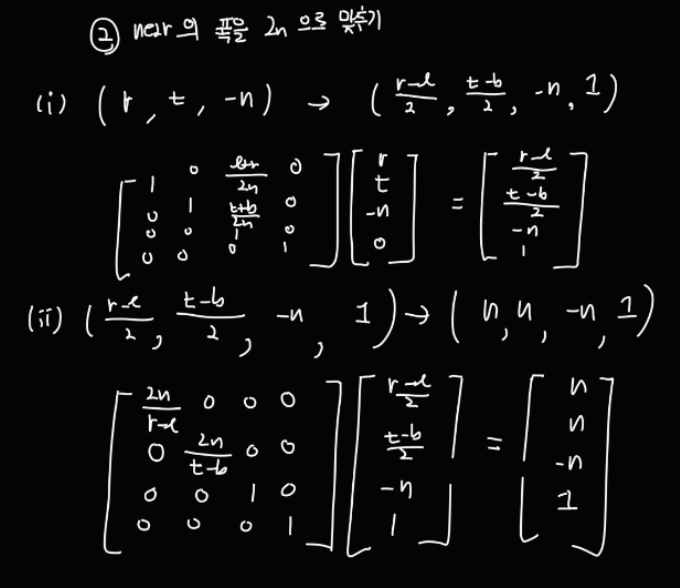 ② near의 폭을 2n으로 맞추기
(i) (r, t, -n) → (\frac{r-l}{2}, \frac{t-b}{2}, -n, 1)
\begin{bmatrix} 1 & 0 & \frac{l+r}{2n} & 0 \\ 0 & 1 & \frac{t+b}{2n} & 0 \\ 0 & 0 & 1 & 0 \\ 0 & 0 & 0 & 1 \end{bmatrix} \begin{bmatrix} r \\ t \\ -n \\ 0 \end{bmatrix} = \begin{bmatrix} \frac{r-l}{2} \\ \frac{t-b}{2} \\ -n \\ 1 \end{bmatrix}
(ii) (\frac{r-l}{2}, \frac{t-b}{2}, -n, 1) → (n, n, -n, 1)
\begin{bmatrix} \frac{2n}{r-l} & 0 & 0 & 0 \\ 0 & \frac{2n}{t-b} & 0 & 0 \\ 0 & 0 & 1 & 0 \\ 0 & 0 & 0 & 1 \end{bmatrix} \begin{bmatrix} \frac{r-l}{2} \\ \frac{t-b}{2} \\ -n \\ 1 \end{bmatrix} = \begin{bmatrix} n \\ n \\ -n \\ 1 \end{bmatrix}